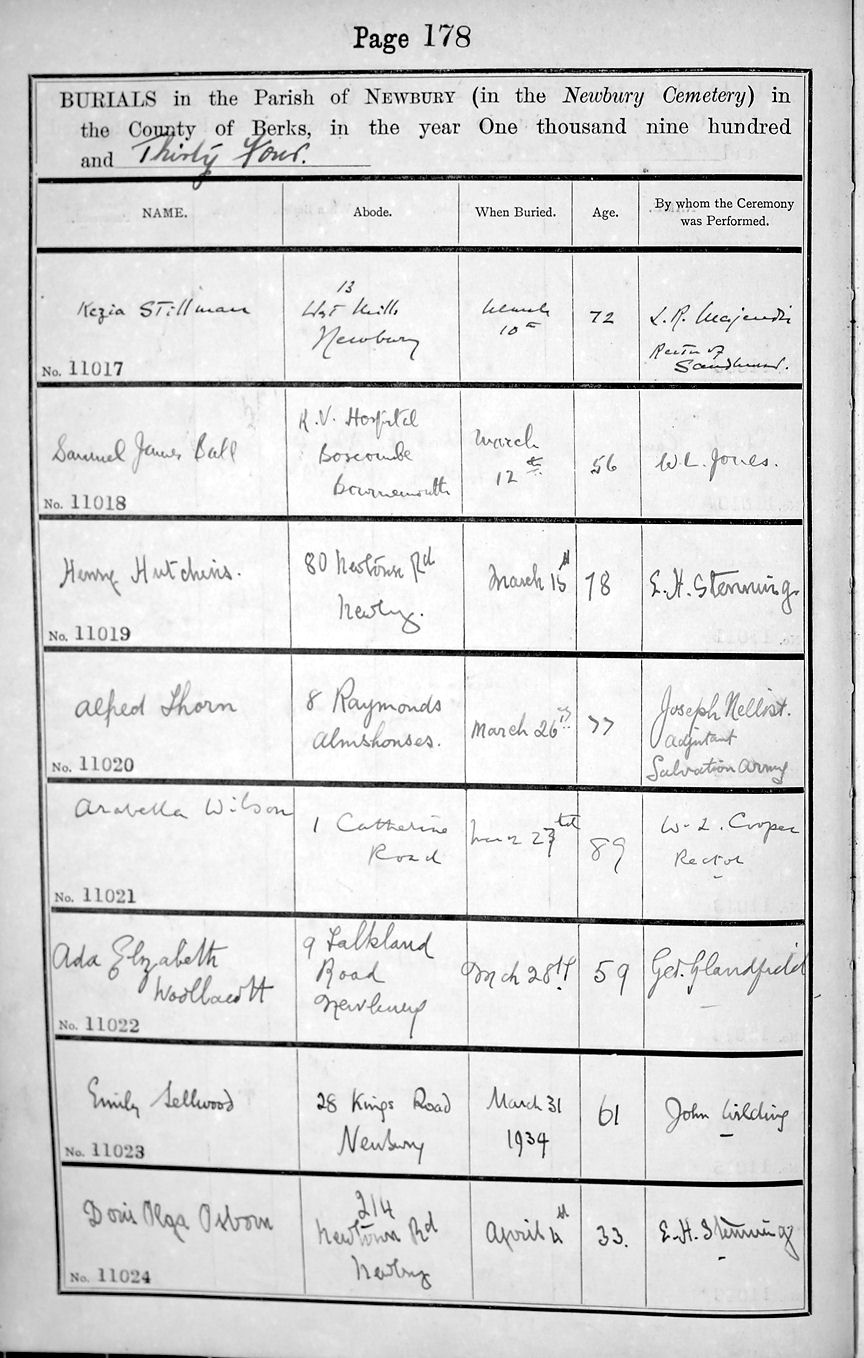 Page 178
BURIALS in the Parish of NEWBURY (in the Newbury Cemetery) in
the County of Berks, in the year One thousand nine hundred
and Thirty Four.
NAME. Abode. When Buried. Age. By whom the Ceremony
was Performed.
Kezia Stillman
13
West Mills
Newbury
March
10th
72
L.R. Majendie
Rector of
No. 11017
Samuel James Ball
R.V. Hospital
Boscombe
Bournemouth
March
12th
56
W.L. Jones.
No. 11018
Henry Hutchins.
80 Newtown Rd
Newbury.
March 15
78
E.H. Stenning
No. 11019
Alfred Thorn
8 Raymonds
Almshouses.
March 26th
77
Joseph Nellist.
Adjutant
Salvation Army
No. 11020
Arabella Wilson
1 Catherine
Road
89
W. L. Cooper
Rector
No. 11021
Ada Elizabeth
Woollacott
9 Falkland
Road
Newbury
Mch 28th
59
Geo. Glandfield
No. 11022
Emily Sellwood
28 Kings Road
Newbury
March 31
1934
61
John Wilding
No. 11023
Doris Olga Osborn
214
Newtown Rd
Newbury
April 4
33.
E.H. Stenning
No. 11024